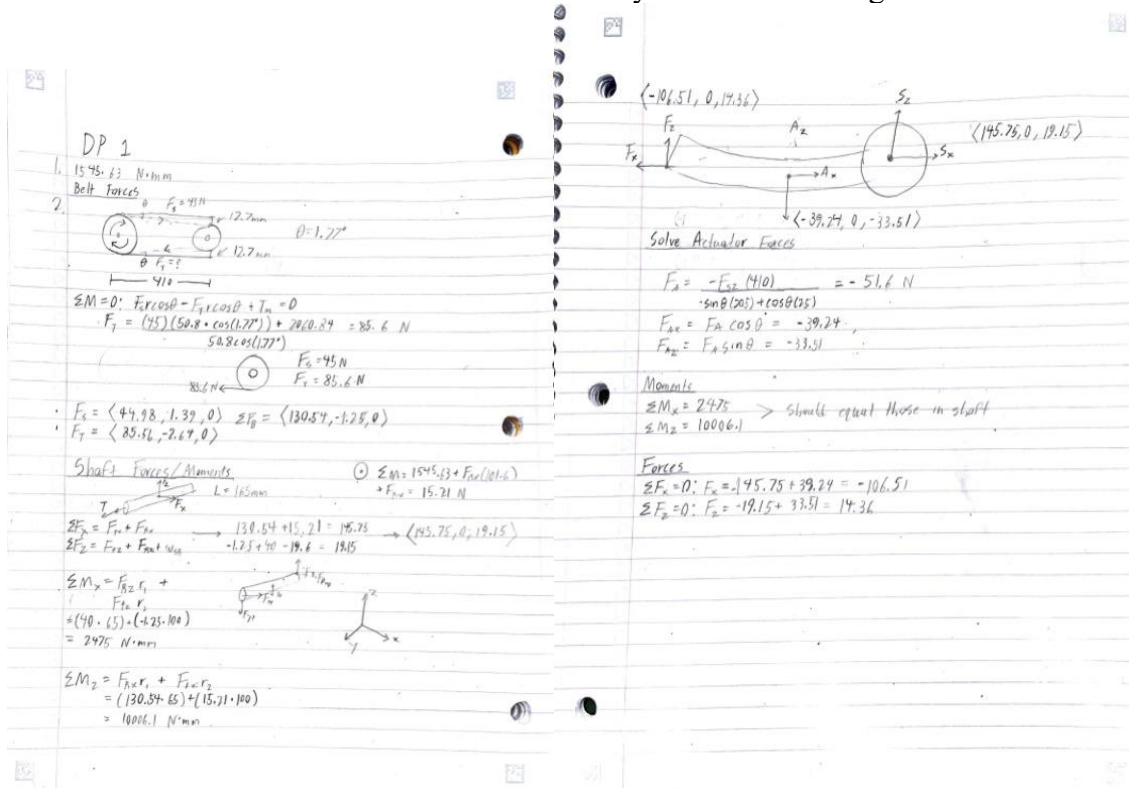 DP 1
1. 1545.63 N·mm
Belt Forces
2.
θ F_s = 45N
12.7mm
θ = 1.77°
12.7mm
θ F_T = ?
410
ΣM=0: F_s r cosθ - F_T r cosθ + T_m = 0
F_T = (45)(50.8 · cos(1.77°)) + 2060.84 = 85.6 N
50.8 cos(1.77°)
F_s = 45 N
F_T = 85.6 N
85.6 N
F_s = ⟨44.98, 1.39, 0⟩ ΣF_B = ⟨130.54, -1.25, 0⟩
F_T = ⟨85.56, -2.64, 0⟩
Shaft Forces/Moments
ΣM = 1545.63 + F_Rx(101.6)
→ F_Rx = 15.21 N
L = 165mm
F_x
T
130.54 + 15.21 = 145.75 → ⟨145.75, 0, 19.15⟩
-1.25 + 40 - 19.6 = 19.15
= (40 · 65) + (-1.25 · 100)
= 2475 N·mm
z
x
y
= (130.54 · 65) + (15.21 · 100)
= 10006.1 N·mm
⟨-106.51, 0, 14.36⟩
S_z
F_z
A_z
⟨145.75, 0, 19.15⟩
F_x
S_x
A_x
⟨-39.24, 0, -33.51⟩
Solve Actuator Forces
F_A = -F_sz (410) = -51.6 N
-sinθ(205) + cosθ(25)
F_Ax = F_A cosθ = -39.24
F_Az = F_A sinθ = -33.51
Moments
ΣM_x = 2475 > should equal those in shaft
ΣM_z = 10006.1
Forces
ΣF_x=0: F_x = -145.75 + 39.24 = -106.51
ΣF_z=0: F_z = -19.15 + 33.51 = 14.36